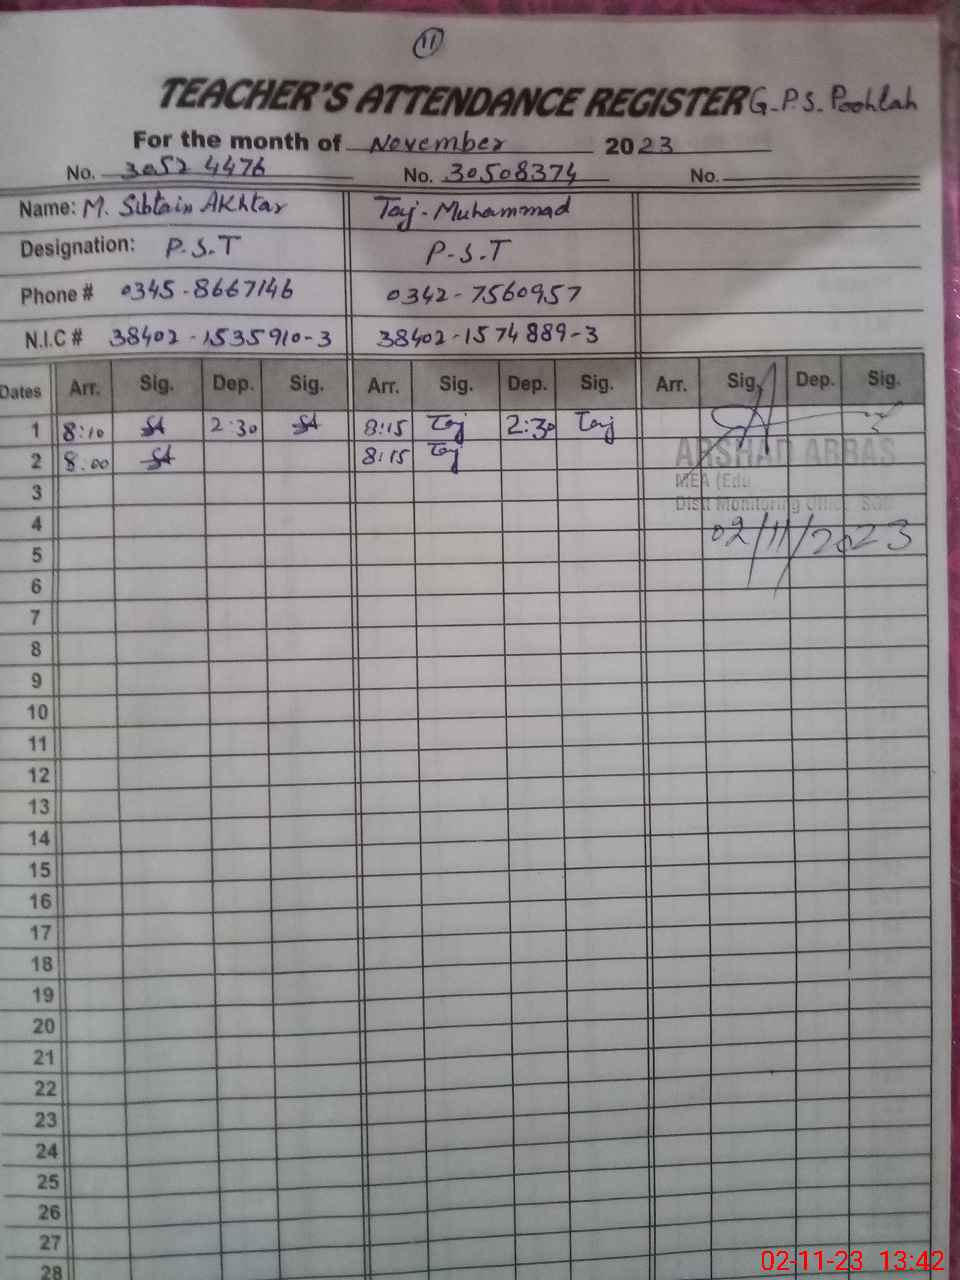 11
TEACHER'S ATTENDANCE REGISTER G.P.S. Poohlah
For the month of November 2023
No. 30524476 No. 30508374 No.
Name: M. Sibtain Akhtar Taj-Muhammad
Designation: P.S.T P.S.T
Phone # 0345-8667146 0342-7560957
N.I.C # 38402-1535910-3 38402-1574889-3
Dates Arr. Sig. Dep. Sig. Arr. Sig. Dep. Sig. Arr. Sig. Dep. Sig.
1 8:10 SA 2:30 SA 8:15 Taj 2:30 Taj
2 8:00 SA 8:15 Taj
ARSHAD ABBAS
3
MEA (Edu
Distt Monitoring Office
4
02/11/2023
5
6
7
8
9
10
11
12
13
14
15
16
17
18
19
20
21
22
23
24
25
26
27
28
02-11-23 13:42